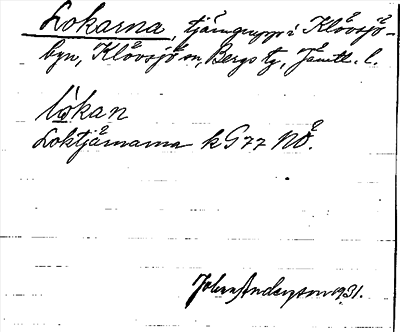 Lokarna, tjärngrupp i Klövsjö-
byn, Klövsjö sn, Bergs tg, Jämtl. l.
lò̩kan
Loktjärnarna k G 77 NÖ.
Johan Anderson 1931.